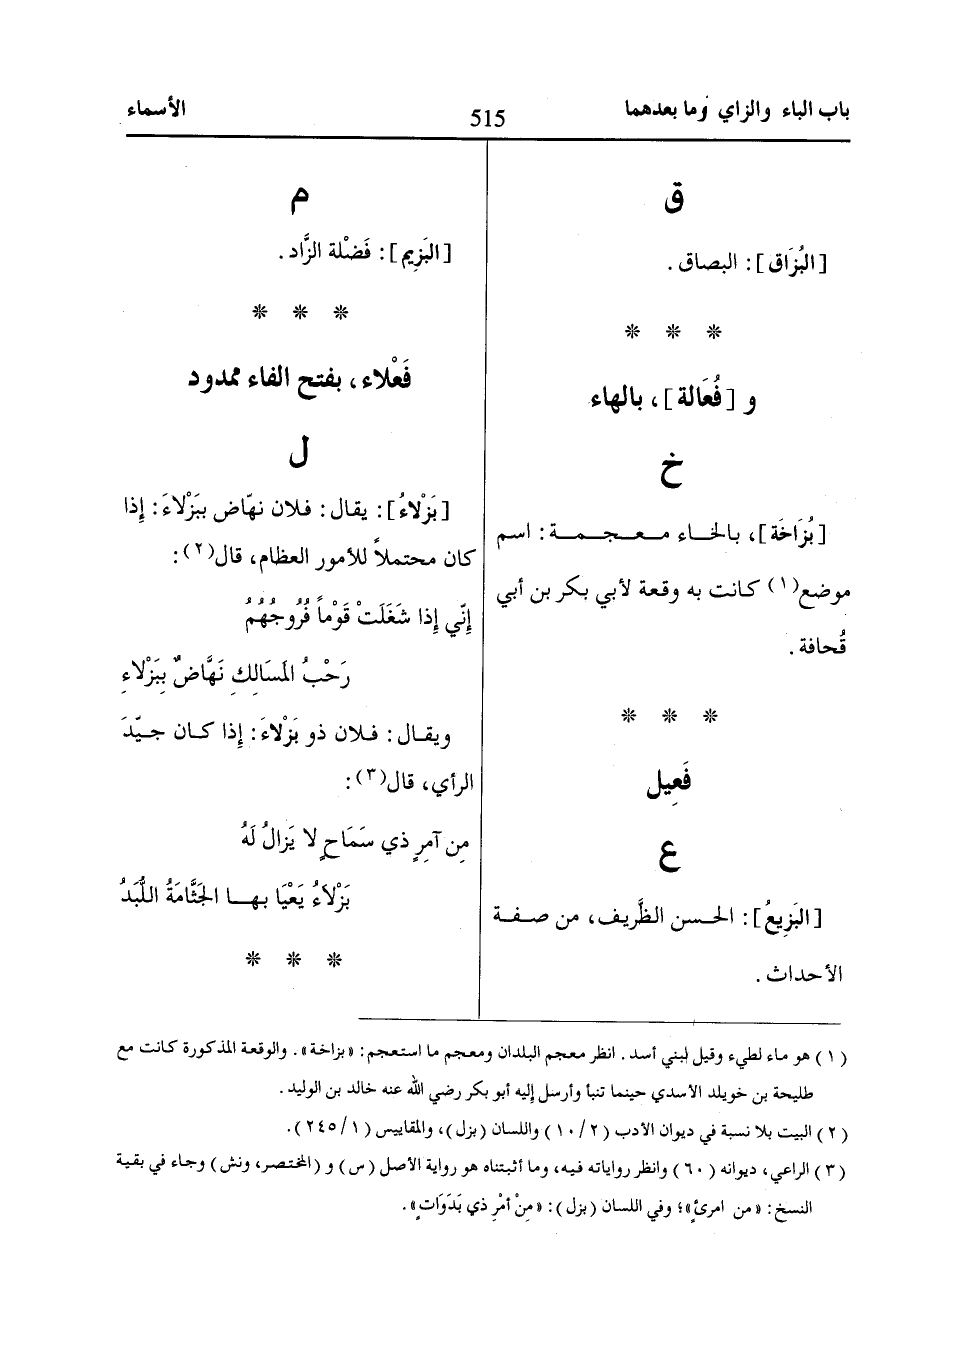 باب الباء والزاي وما بعدهما
515
الأسماء
ق
[البُزَاق]: البصاق.
* * *
و [فُعَالة]، بالهاء
خ
[بُزَاخَة]، بالخاء معجمة: اسم
موضع(١) كانت به وقعة لأبي بكر بن أبي
قُحافة.
* * *
فَعِيل
ع
[البَزِيعُ]: الحسن الظَّريف، من صفة
الأحداث.
م
[البَزِيم]: فَضْلة الزَّاد.
* * *
فَعْلاء، بفتح الفاء ممدود
ل
[بَزْلاءُ]: يقال: فلان نهّاض ببَزْلاءَ: إذا
كان محتملاً للأمور العظام، قال(٢):
إِنّي إِذا شَغَلَتْ قَوْماً فُرُوجُهُمُ
رَحْبُ المَسَالِكِ نَهَّاضٌ بِبَزْلاءِ
ويقال: فلان ذو بَزْلاءَ: إذا كان جيّدَ
الرأي، قال(٣):
مِن آمِرٍ ذي سَمَاحٍ لا يَزالُ لَهُ
بَزْلاءُ يَعْيَا بها الجَثَّامَةُ اللُّبَدُ
* * *
(١) هو ماء لطيء وقيل لبني أسد. انظر معجم البلدان ومعجم ما استعجم: «بزاخة». والوقعة المذكورة كانت مع
طليحة بن خويلد الأسدي حينما تنبأ وأرسل إليه أبو بكر رضي الله عنه خالد بن الوليد.
(٢) البيت بلا نسبة في ديوان الأدب (١٠/٢) واللسان (بزل)، والمقاييس (٢٤٥/١).
(٣) الراعي، ديوانه (٦٠) وانظر رواياته فيه، وما أثبتناه هو رواية الأصل (س) و (المختصر، ونش) وجاء في بقية
النسخ: «من امرئٍ»؛ وفي اللسان (بزل): «مِنْ أمْرِ ذي بَدَوَاتٍ».